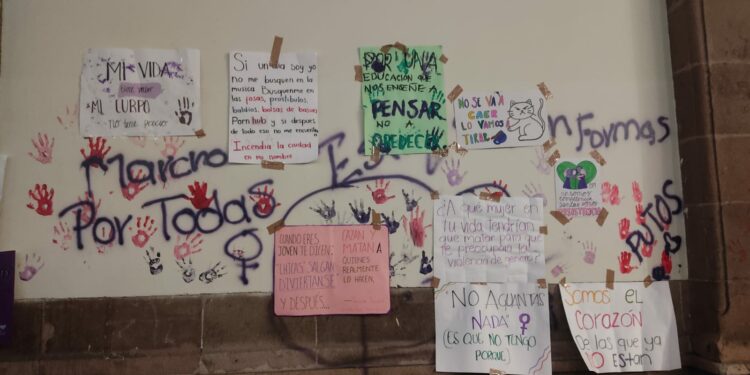 MI VIDA
tiene valor
MI CUERPO
NO tiene precio
Si un día soy yo
no me busquen en la
musica Busquenme en
las fosas, prostíbulos,
baldíos, bolsas de basura
Pornhub y si después
de todo eso no me encuentran
Incendia la ciudad
en mi nombre
POR UNA
EDUCACIÓN QUE
NOS ENSEÑE A
PENSAR
NO A
OBEDECER
NO SE VA A
CAER
LO VAMOS A
TIRAR
Marcho
Por Todas
nformas
PUTOS
CUANDO ERES
JOVEN TE DICEN:
"CHICAS" SALGAN
DIVIERTANSE
Y DESPUÉS...
CAZAN
MATAN A
QUIENES
REALMENTE
LO HACEN.
¿A QUE MUJER EN
TU VIDA TENDRÍAN
QUE MATAR PARA QUE
TE PREOCUPARA LA
VIOLENCIA DE GENERO?
"NO AGUANTAS
NADA"
(ES QUE NO TENGO
PORQUE)
SOMOS EL
CORAZÓN
De las que ya
NO ESTAN